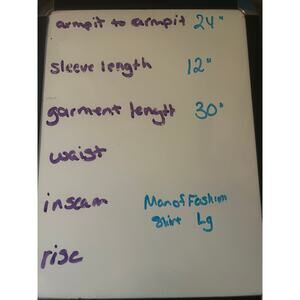 armpit to armpit 24"
sleeve length 12"
garment length 30"
waist
inseam Man of Fashion
Shirt Lg
rise